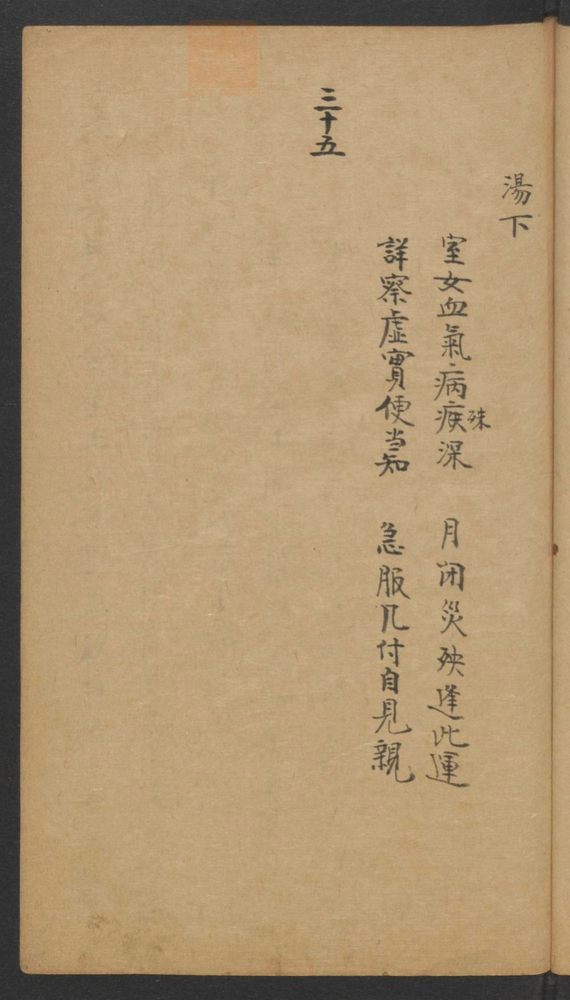 湯下
室女血氣病疾深 月闭災殃逢此運
殊
詳察虛實便当知 急服几付自見親
三十五